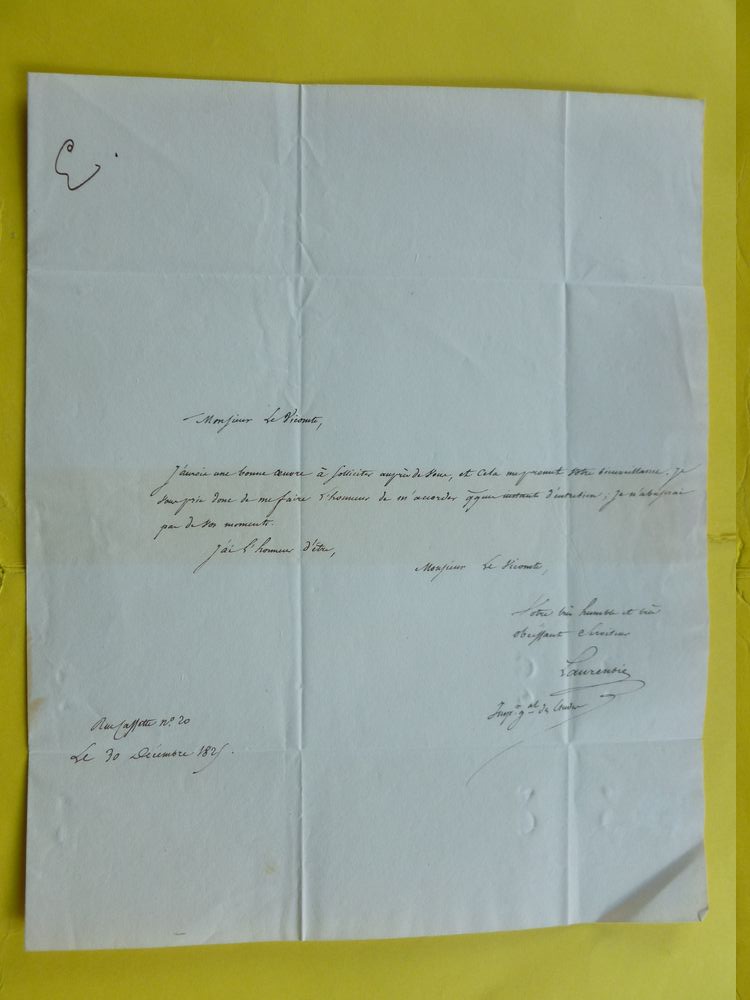 Monsieur Le Vicomte,
J'aurois une bonne œuvre à solliciter auprès de vous, et cela me promet votre bienveillance. Je
vous prie donc de me faire l'honneur de m'accorder qque instant d'entretien ; je n'abuserai
pas de vos moments.
J'ai l'honneur d'être,
Monsieur Le Vicomte,
Votre très humble et très
obéissant Serviteur
Laurentie
Insp. gal des études
Rue Cassette n° 20
Le 30 Décembre 1825.